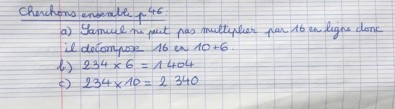 Cherchons ensemble p 46
a) Samuel ne peut pas multiplier par 16 en ligne donc
il décompose 16 en 10+6.
b) 234 x 6 = 1 404
c) 234 x 10 = 2 340